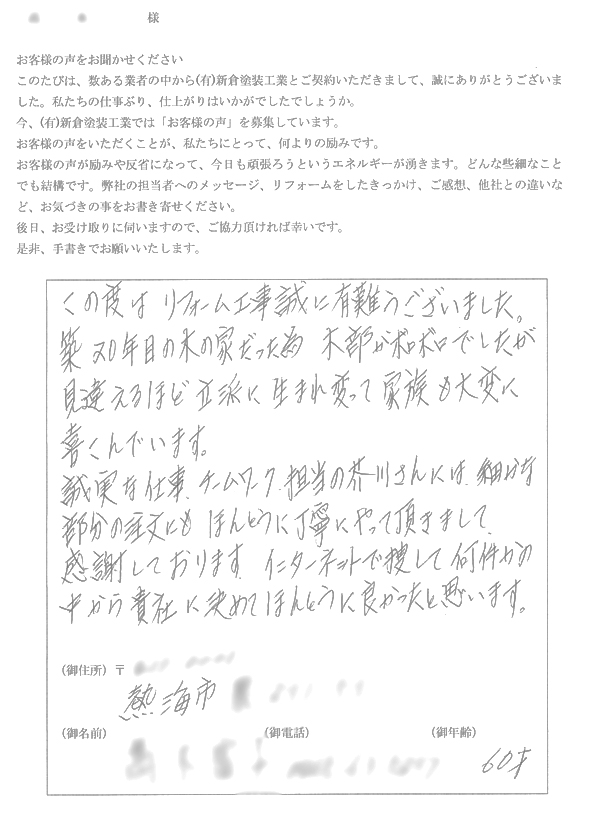 様
お客様の声をお聞かせください
このたびは、数ある業者の中から(有)新倉塗装工業とご契約いただきまして、誠にありがとうございま
した。私たちの仕事ぶり、仕上がりはいかがでしたでしょうか。
今、(有)新倉塗装工業では「お客様の声」を募集しています。
お客様の声をいただくことが、私たちにとって、何よりの励みです。
お客様の声が励みや反省になって、今日も頑張ろうというエネルギーが湧きます。どんな些細なこと
でも結構です。弊社の担当者へのメッセージ、リフォームをしたきっかけ、ご感想、他社との違いな
ど、お気づきの事をお書き寄せください。
後日、お受け取りに伺いますので、ご協力頂ければ幸いです。
是非、手書きでお願いいたします。
この度は リフォーム工事誠に有難うございました。
築 年目の木の家だった為 木部がボロボロでしたが
見違えるほど立派に生まれ変って家族も大変に
喜くんでいます。
誠実な仕事、チームワーク、担当の芥川さんには、細かな
部分の注文にも ほんとうに丁寧にやって頂きまして、
感謝しております。インターネットで捜して何件かの
中から貴社に決めてほんとうに良かったと思います。
(御住所) 〒
熱海市
(御名前) (御電話) (御年齢)
60才